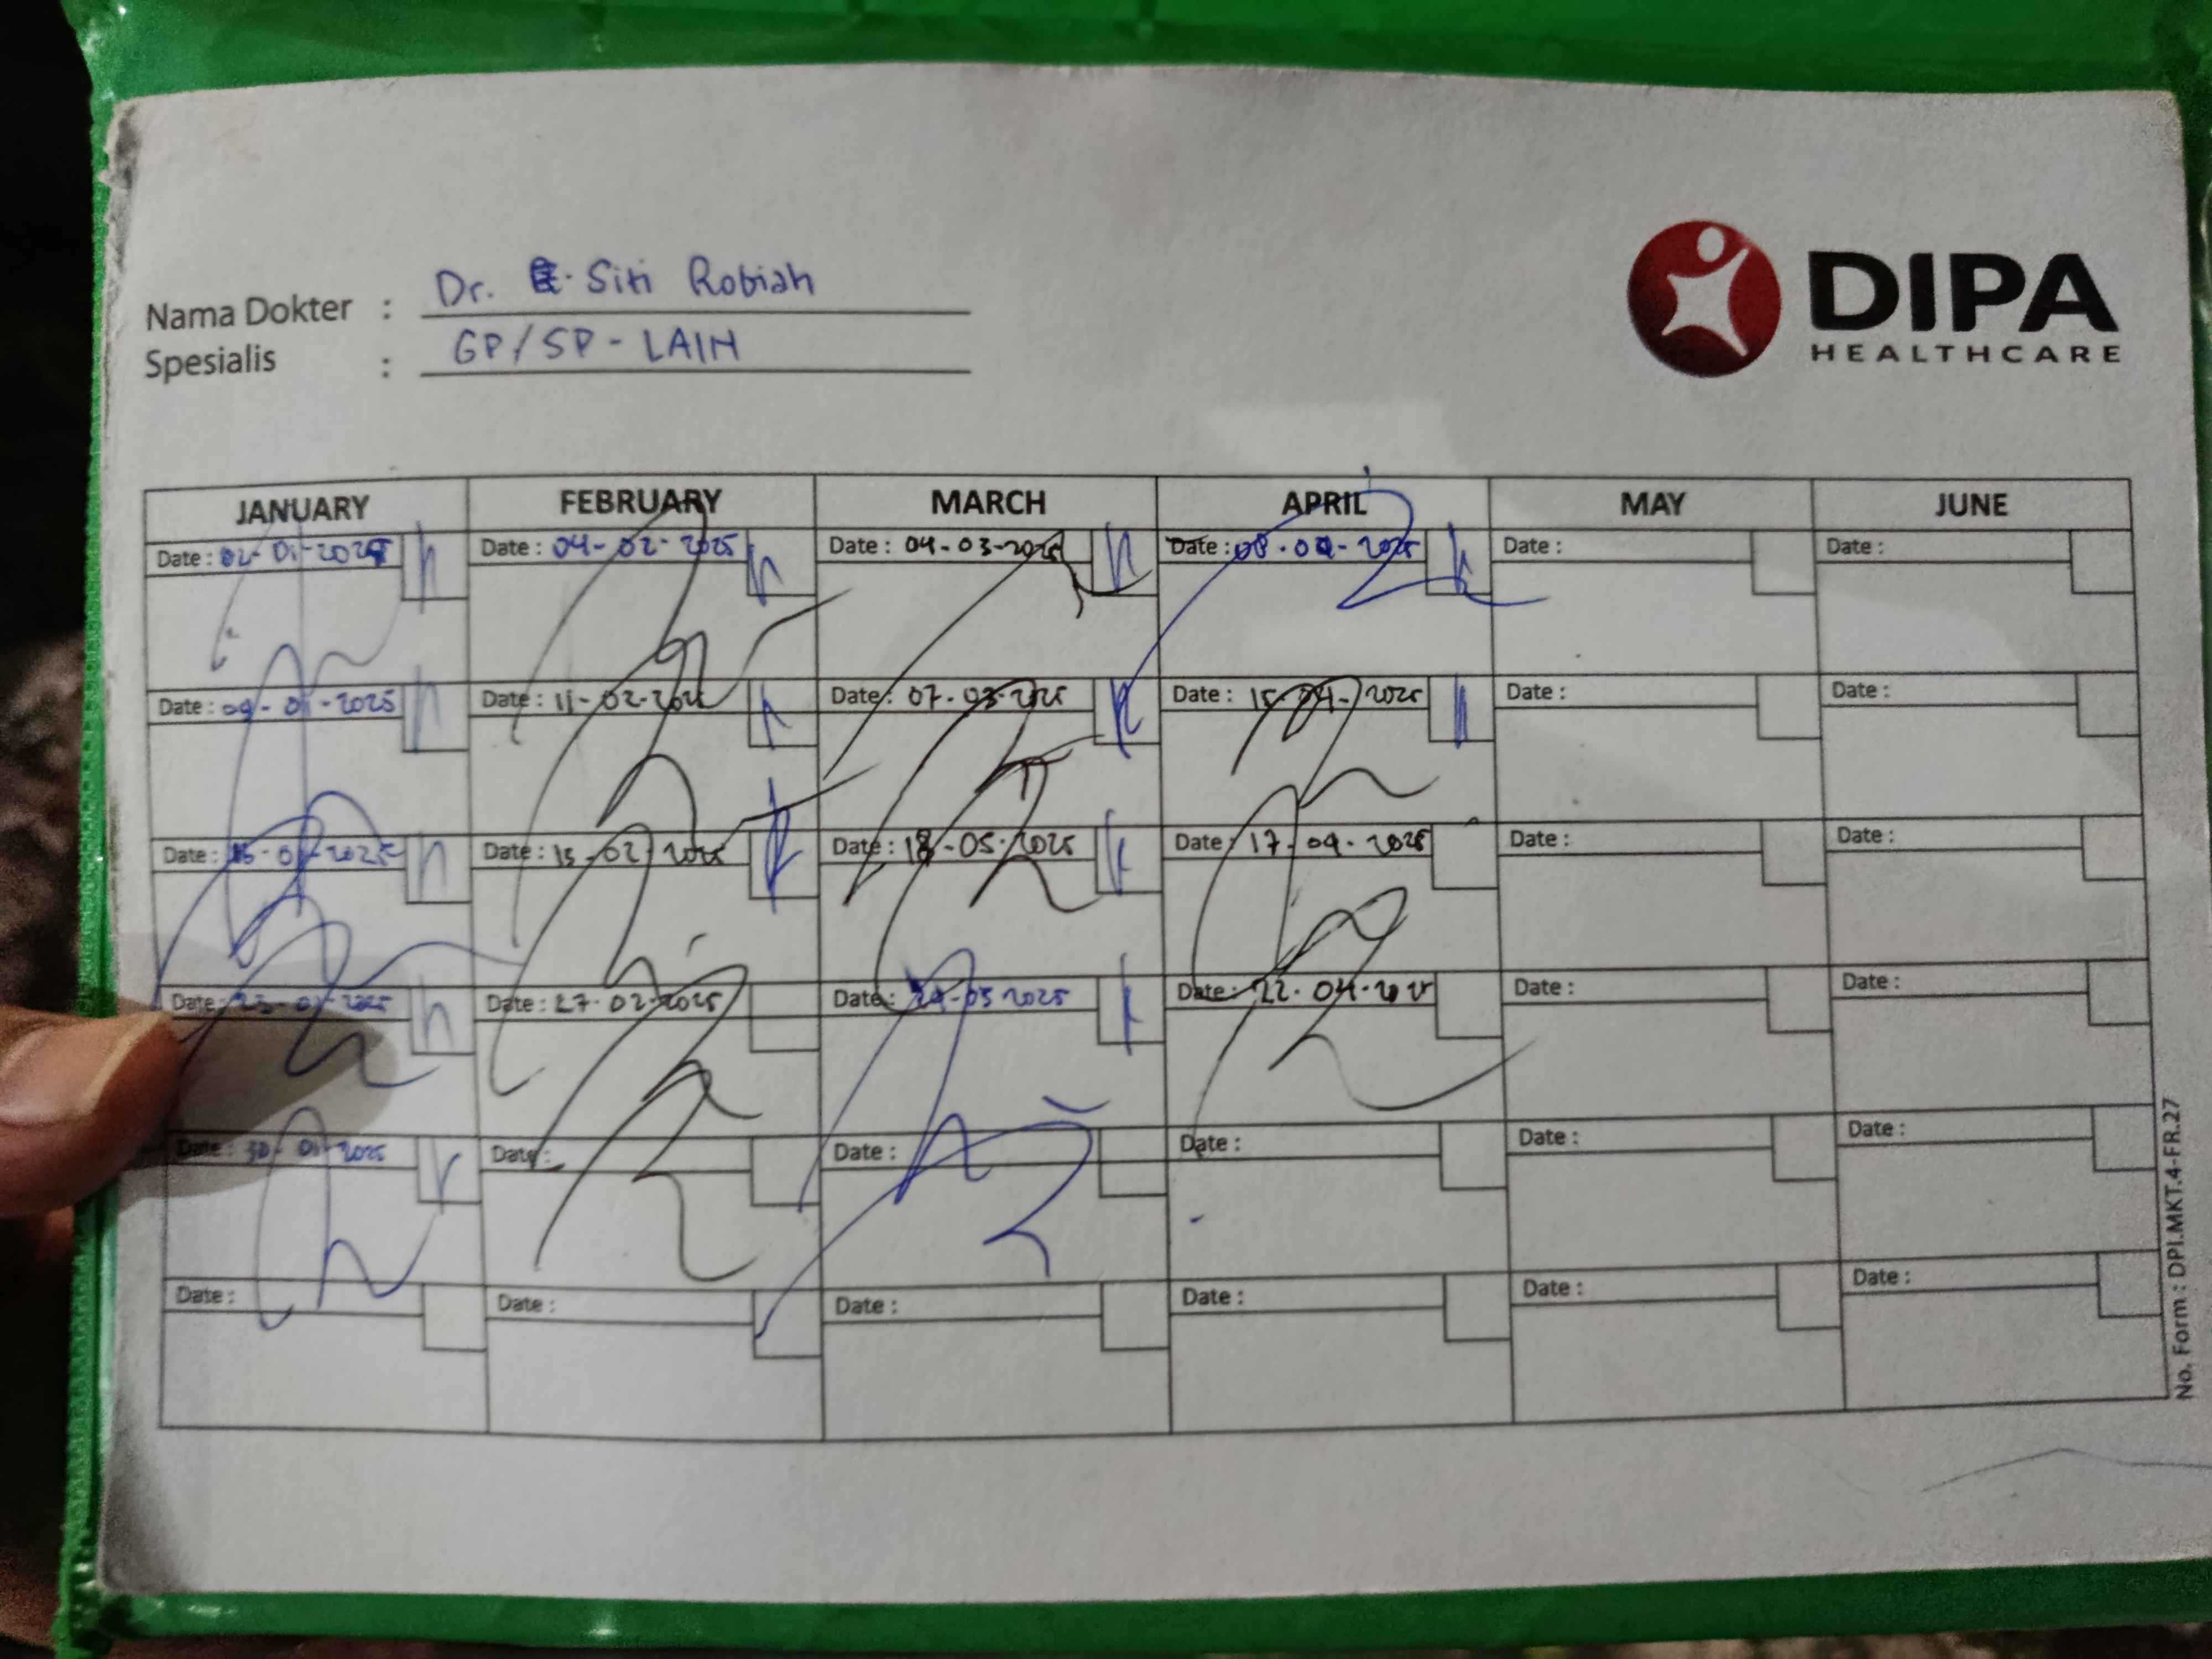 Nama Dokter : Dr. Siti Robiah
Spesialis : GP/SP-LAIN
DIPA
HEALTHCARE
JANUARY FEBRUARY MARCH APRIL MAY JUNE
Date : 02-01-2025 Date : 04-02-2025 Date : 04-03-2025 Date : 08-04-2025 Date : Date :
Date : 09-01-2025 Date : 11-02-2025 Date : 07-03-2025 Date : 15-04-2025 Date : Date :
Date : Date : 15-02-2025 Date : 18-05-2025 Date : 17-04-2025 Date : Date :
Date : 23-01-2025 Date : 27-02-2025 Date : Date : 22-04-2025 Date : Date :
Date : 30-01-2025 Date : Date : Date : Date : Date :
Date : Date : Date : Date : Date : Date :
No. Form : DPI.MKT.4-FR.27